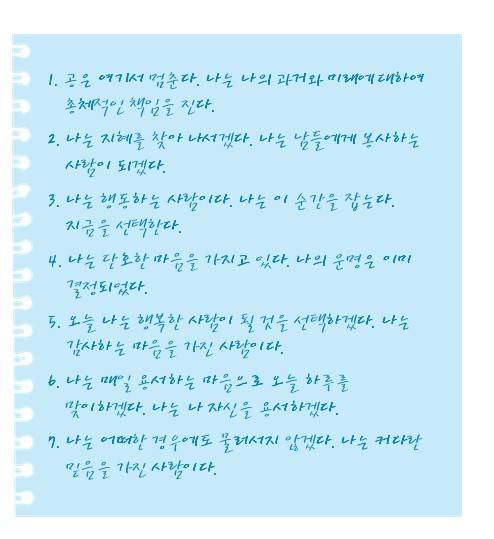 1. 공은 여기서 멈춘다. 나는 나의 과거와 미래에 대하여
총체적인 책임을 진다.
2. 나는 지혜를 찾아 나서겠다. 나는 남들에게 봉사하는
사람이 되겠다.
3. 나는 행동하는 사람이다. 나는 이 순간을 잡는다.
지금을 선택한다.
4. 나는 단호한 마음을 가지고 있다. 나의 운명은 이미
결정되었다.
5. 오늘 나는 행복한 사람이 될 것을 선택하겠다. 나는
감사하는 마음을 가진 사람이다.
6. 나는 매일 용서하는 마음으로 오늘 하루를
맞이하겠다. 나는 나 자신을 용서하겠다.
7. 나는 어떠한 경우에도 물러서지 않겠다. 나는 커다란
믿음을 가진 사람이다.